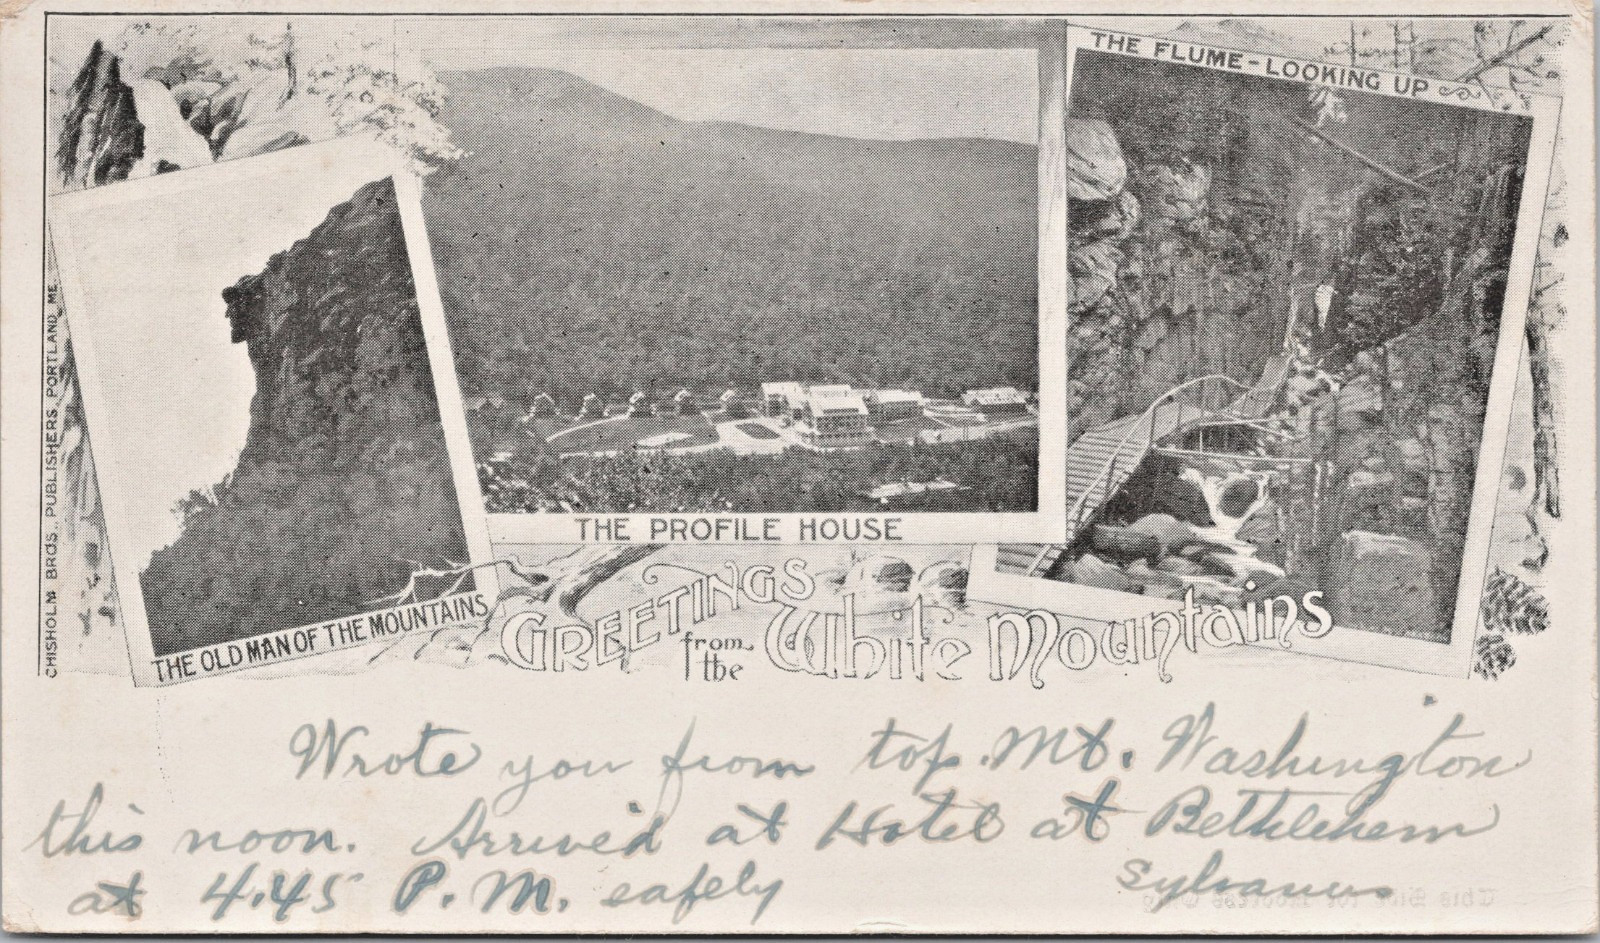 THE FLUME-LOOKING UP
THE PROFILE HOUSE
THE OLD MAN OF THE MOUNTAINS
CHISHOLM BROS., PUBLISHERS, PORTLAND, ME.
GREETINGS from the White Mountains
Wrote you from top. Mt. Washington
this noon. Arrived at Hotel at Bethlehem
at 4.45 P.M. safely
Sylvanus